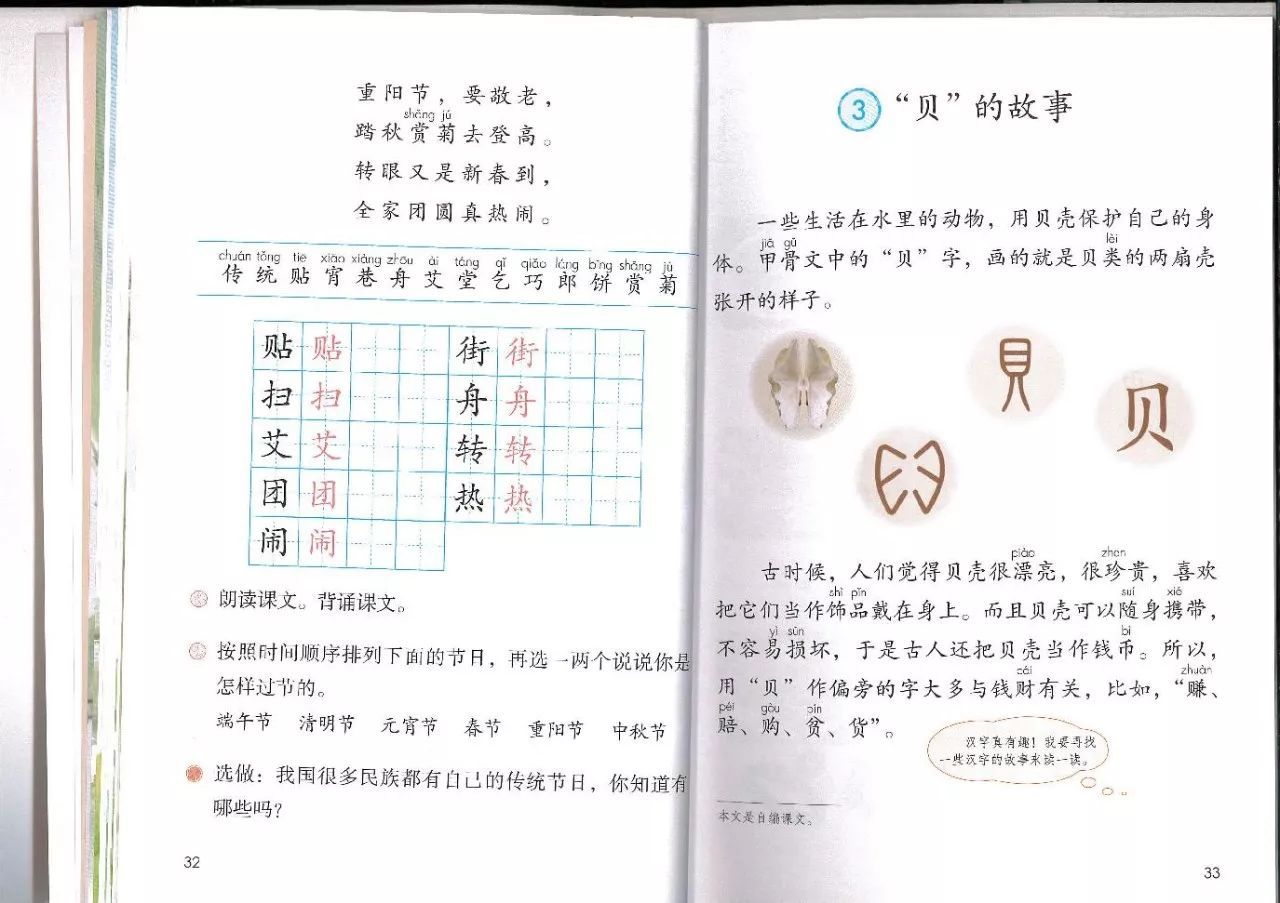 重阳节，要敬老，
shǎng jú
踏秋赏菊去登高。
转眼又是新春到，
全家团圆真热闹。
chuán tǒng tiē xiāo xiàng zhōu ài táng qǐ qiǎo láng bǐng shǎng jú
传 统 贴 宵 巷 舟 艾 堂 乞 巧 郎 饼 赏 菊
贴 贴 街 街
扫 扫 舟 舟
艾 艾 转 转
团 团 热 热
闹 闹
朗读课文。背诵课文。
按照时间顺序排列下面的节日，再选一两个说说你是
怎样过节的。
端午节 清明节 元宵节 春节 重阳节 中秋节
选做：我国很多民族都有自己的传统节日，你知道有
哪些吗？
32
3 “贝”的故事
一些生活在水里的动物，用贝壳保护自己的身
jiǎ gǔ lèi
体。甲骨文中的“贝”字，画的就是贝类的两扇壳
张开的样子。
貝
贝
piào zhēn
古时候，人们觉得贝壳很漂亮，很珍贵，喜欢
shì pǐn suí xié
把它们当作饰品戴在身上。而且贝壳可以随身携带，
yì sǔn bì
不容易损坏，于是古人还把贝壳当作钱币。所以，
cái zhuàn
用“贝”作偏旁的字大多与钱财有关，比如，“赚、
péi gòu pín
赔、购、贫、货”。
汉字真有趣！我要寻找
一些汉字的故事来读一读。
本文是自编课文。
33